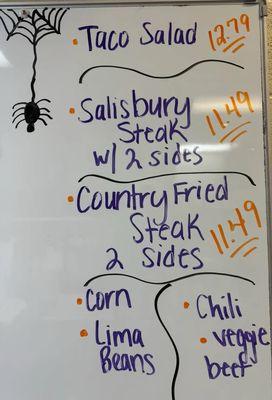 • Taco Salad 12.79
• Salisbury 11.49
Steak
w/ 2 sides
• Country Fried
Steak 11.49
2 sides
• Corn
• Lima
Beans
• Chili
• veggie
beef